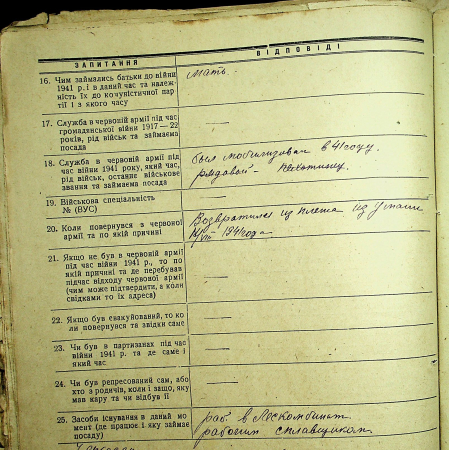 ЗАПИТАННЯ
ВІДПОВІДІ
16. Чим займались батьки до війни
1941 р. і в даний час та належ-
ність їх до комуністичної пар-
тії і з якого часу
мать.
17. Служба в червоній армії під час
громадянської війни 1917—22
років, рід військ та займаема
посада
18. Служба в червоній армії під
час війни 1941 року, який час,
рід військ, останне військове
звання та займаема посада
был мобилизован в 41 году.
рядовой - пехотинец.
19. Військова спеціальність
№ (ВУС)
20. Коли повернувся з червоної
армії та по якій причині
Возвратился из плена из Умани
VIII 1941 года
21. Якщо не був в червоній армії
під час війни 1941 р., то по
якій причині та де перебував
підчас відходу червоної армії
(чим може підтвердити, а коли
свідками то їх адреса)
22. Якщо був евакуйований, то ко-
ли повернувся та звідки саме
23. Чи був в партизанах під час
війни 1941 р. та де саме і
який час
24. Чи був репресований сам, або
хто з родичів, коли і защо, яку
мав кару та чи відбув її
25. Засоби існування в даний мо-
мент (де працює і яку займає
посаду)
раб. в Лескомбинат
рабочим сплавщиком